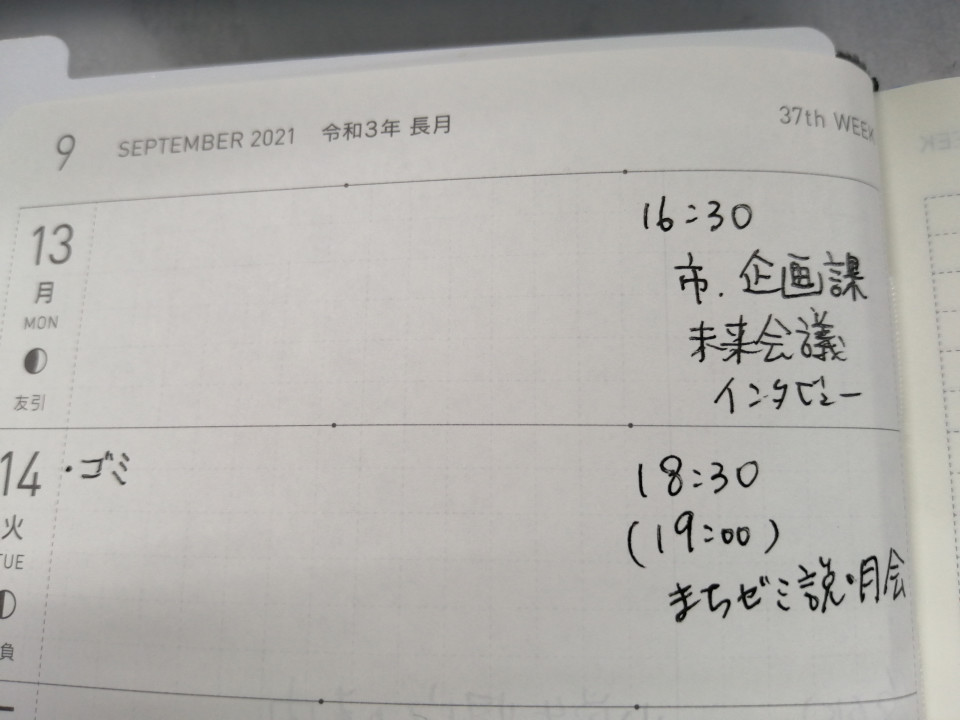 9 SEPTEMBER 2021 令和3年 長月 37th WEEK
13
月
MON
友引
16:30
市.企画課
未来会議
インタビュー
14
・ゴミ
火
TUE
負
18:30
(19:00)
まちゼミ説明会